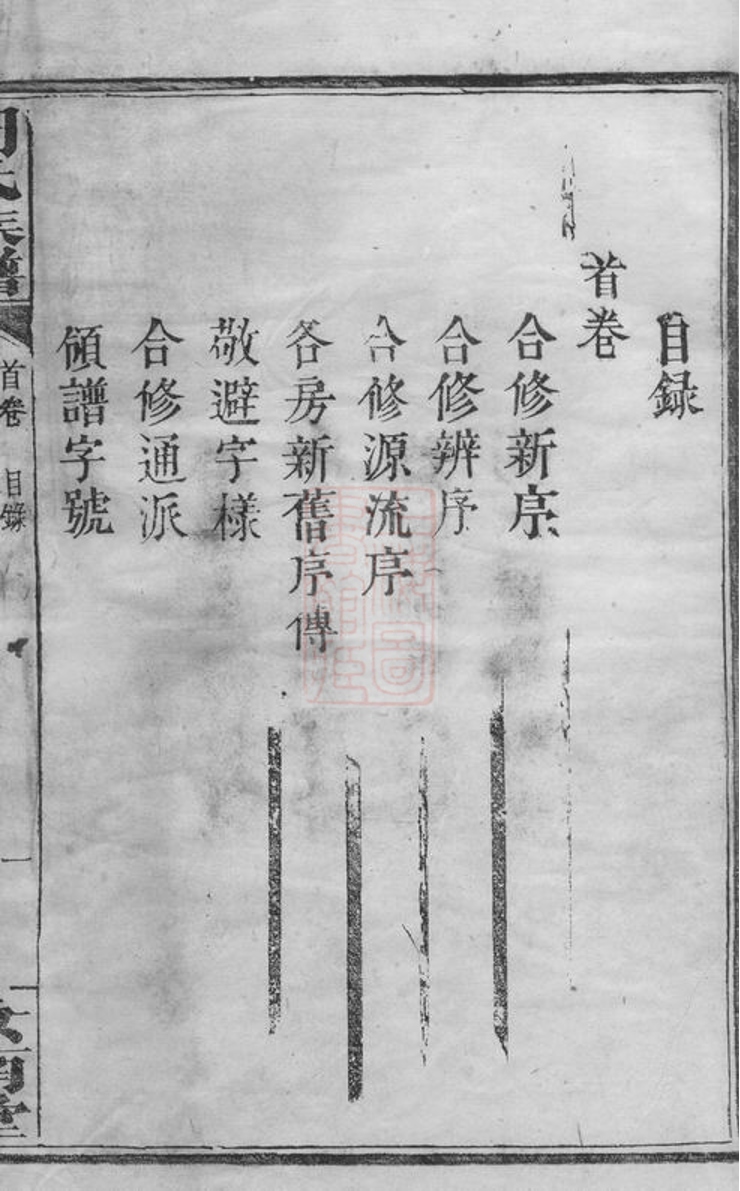 目録
首卷
合修新序
合修辨序
合修源流序
各房新舊序傳
敬避字様
合修通派
領譜字號
氏族譜
首卷
目錄
一